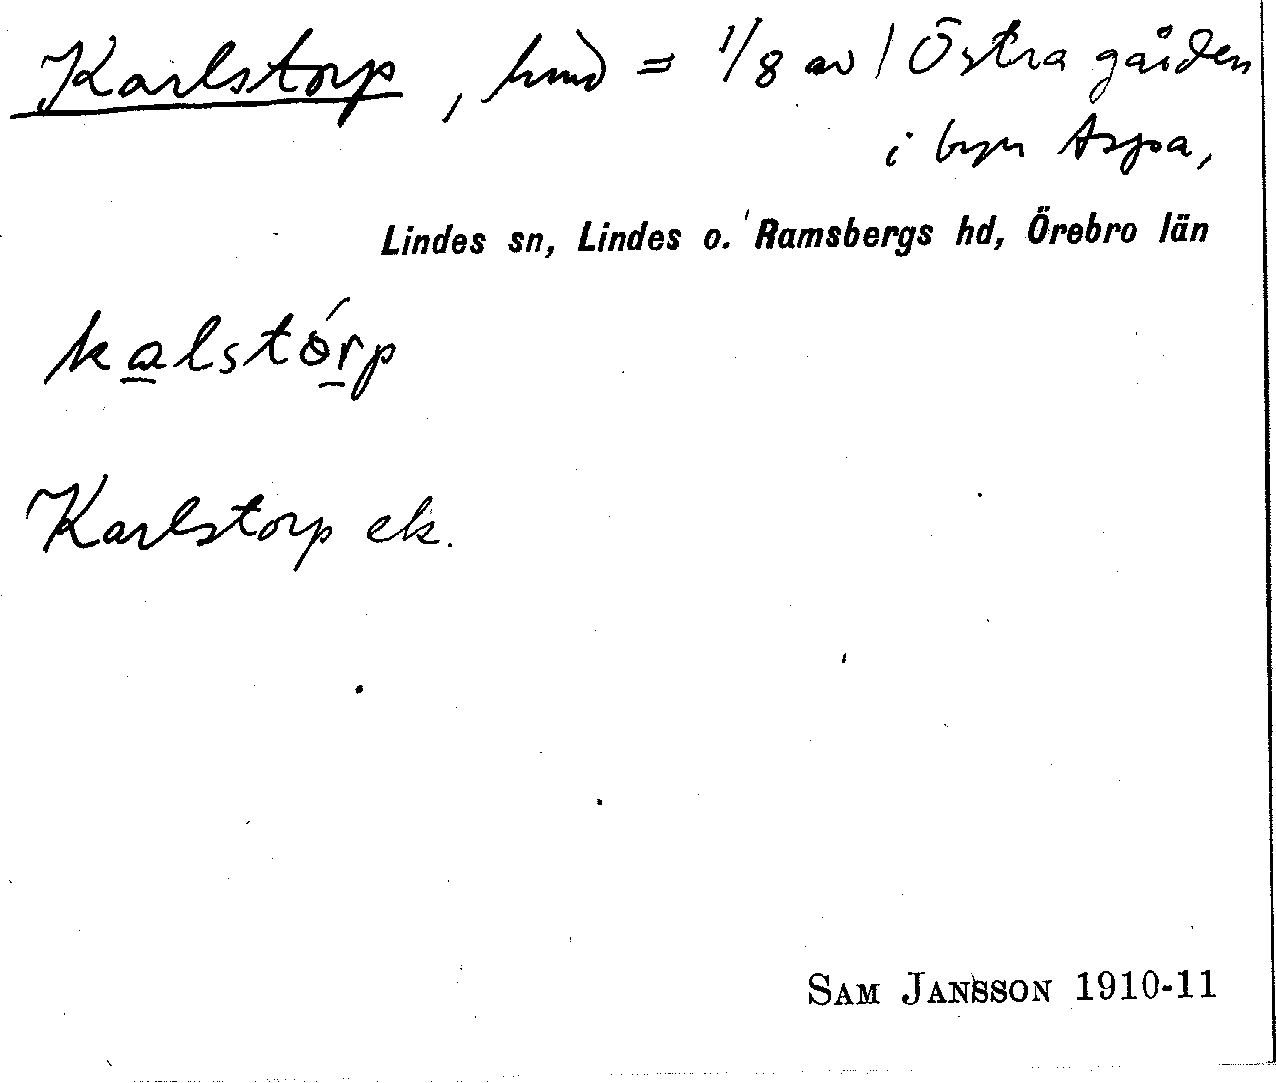 Karlstorp, hmd = 1/8 av / Östra gården
i byn Aspa,
Lindes sn, Lindes o. Ramsbergs hd, Örebro län
kalstórp
Karlstorp ek.
SAM JANSSON 1910-11